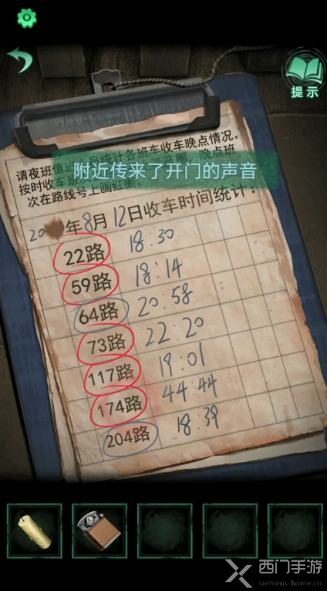 提示
请夜班
统计各班车收车晚点情况。
按时收车
晚点班
次在路线号上画红圈
附近传来了开门的声音
20 年8月12日收车时间统计:
22路 18:30
59路 18:14
64路 20:58
73路 22:20
117路 19:01
174路 44:44
204路 18:39
西门手游